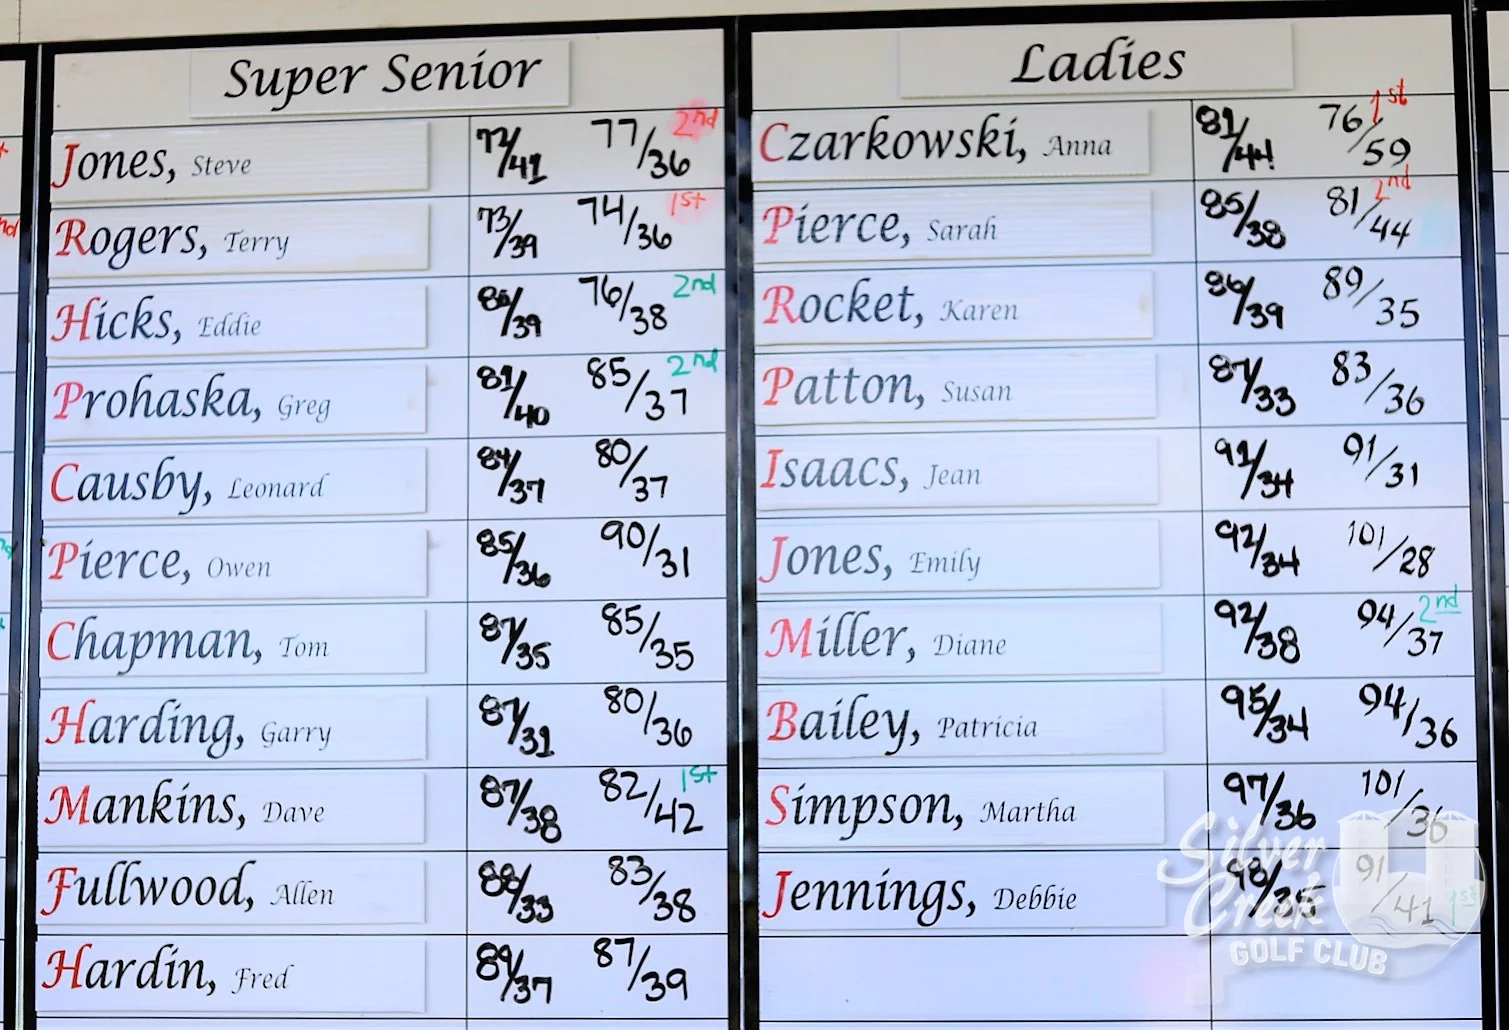 Super Senior
Jones, Steve 72/41 77/36 2nd
Rogers, Terry 73/39 74/36 1st
Hicks, Eddie 80/39 76/38 2nd
Prohaska, Greg 81/40 85/37 2nd
Causby, Leonard 84/37 80/37
Pierce, Owen 85/36 90/31
Chapman, Tom 87/35 85/35
Harding, Garry 87/31 80/36
Mankins, Dave 87/38 82/42 1st
Fullwood, Allen 88/33 83/38
Hardin, Fred 89/37 87/39
Ladies
Czarkowski, Anna 81/44 76/59 1st
Pierce, Sarah 85/38 81/44 2nd
Rocket, Karen 86/39 89/35
Patton, Susan 87/33 83/36
Isaacs, Jean 91/34 91/31
Jones, Emily 92/34 101/28
Miller, Diane 92/38 94/37 2nd
Bailey, Patricia 95/34 94/36
Simpson, Martha 97/36 101/36
Jennings, Debbie 98/35 91/41 1st
Silver
Creek
GOLF CLUB